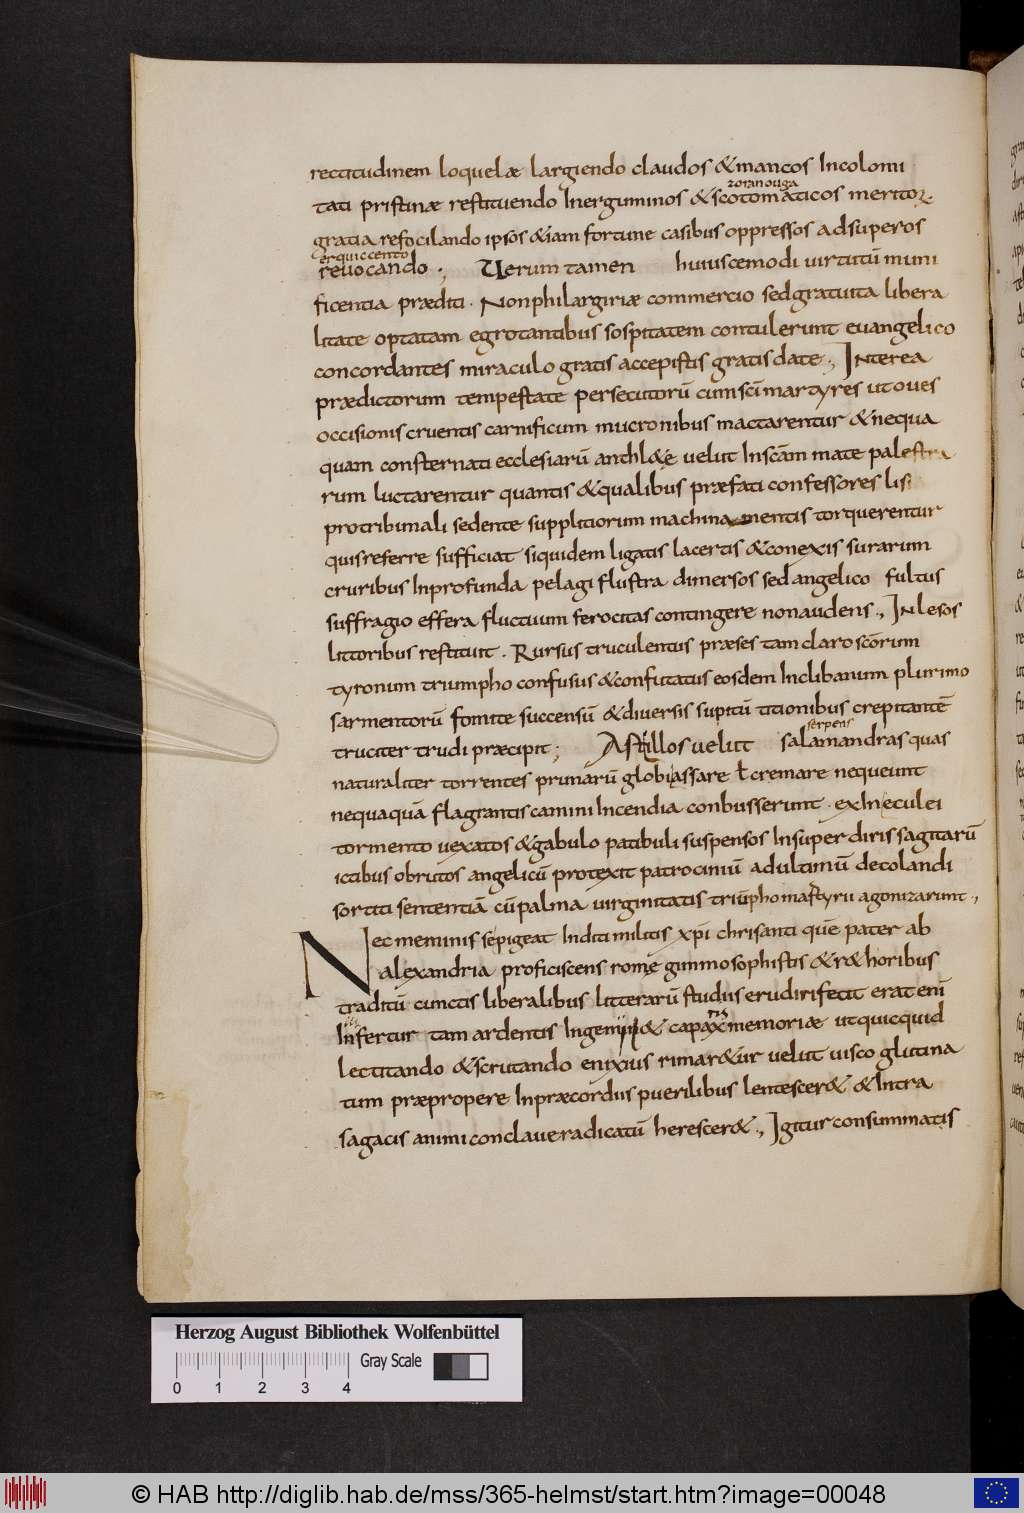 rectitudinem loquelæ largiendo claudos &mancos Incolomi
zoranouga
tati pristinæ restituendo Inerguminos &scotomaticos meritoꝝ
gratia refocilando ipsos &iam fortune casibus oppressos adsuperos
erquiccento
reuocando ·, Uerum tamen huiuscemodi uirtutū muni
ficentia præditi · Nonphilargiriæ commercio sedgratuita libera
litate optatam egrotantibus sospitatem contulerunt euangelico
concordantes miraculo gratis accepistis gratis date ·, Interea
prædictorum tempestate persecutorū cumscī martyres utoues
occisionis cruentis carnificum mucronibus mactarentur &nequa
quam consternati ecclesiarū anthl&ę uelut Inscāmmate palestra
rum luctarentur quantis &qualibus præfati confessores lisi
protribunali sedente supplitiorum machinamentis torquerentur
quisreferre sufficiat siquidem ligatis lacertis &conexis surarum
cruribus Inprofunda pelagi flustra dimersos sed angelico fultus
suffragio effera fluctuum ferocitas contingere nonaudens ·, Inlesos
littoribus restituit . Rursus truculentus præses tam claroscōrum
tyronum triumpho confusus &confutatus eosdem Inclibanum plurimo
sarmentorū fomite succensū &diuersis stupitū titionibus crepitantē
serpens
truciter trudi præcipit ; Ast illos uelut salamandras quas
naturaliter torrentes prunarū globi assare ł cremare nequeunt
nequaquā flagrantis camini Incendia conbusserunt · exIn eculei
tormento uexatos &gabulo patibuli suspensos Insuper diris sagitarū
ictibus obrutos angelicū protexit patrociniū adultimū decolandi
sortiti sententiā cūpalma uirginitatis triūpho martyrii agonizarunt ·,
Nec meminis sępigeat Inditi militis xp̄i chrisanti quē pater ab
alexandria proficiscens romę gimmosophistis &r&horibus
traditū cunctis liberalibus litterarū studiis erudiri fecit erat enī
Infertur tam ardentis Ingenii & capax memoriæ utquicquid
lectitando &scrutando enixius rimar&ur uelut uisco glutina
tum præpropere Inpræcordiis puerilibus lentescer& &Intra
sagacis animi conclaue radicatū herescer& ·, Igitur consummatis
Herzog August Bibliothek Wolfenbüttel
Gray Scale
0 1 2 3 4
© HAB http://diglib.hab.de/mss/365-helmst/start.htm?image=00048